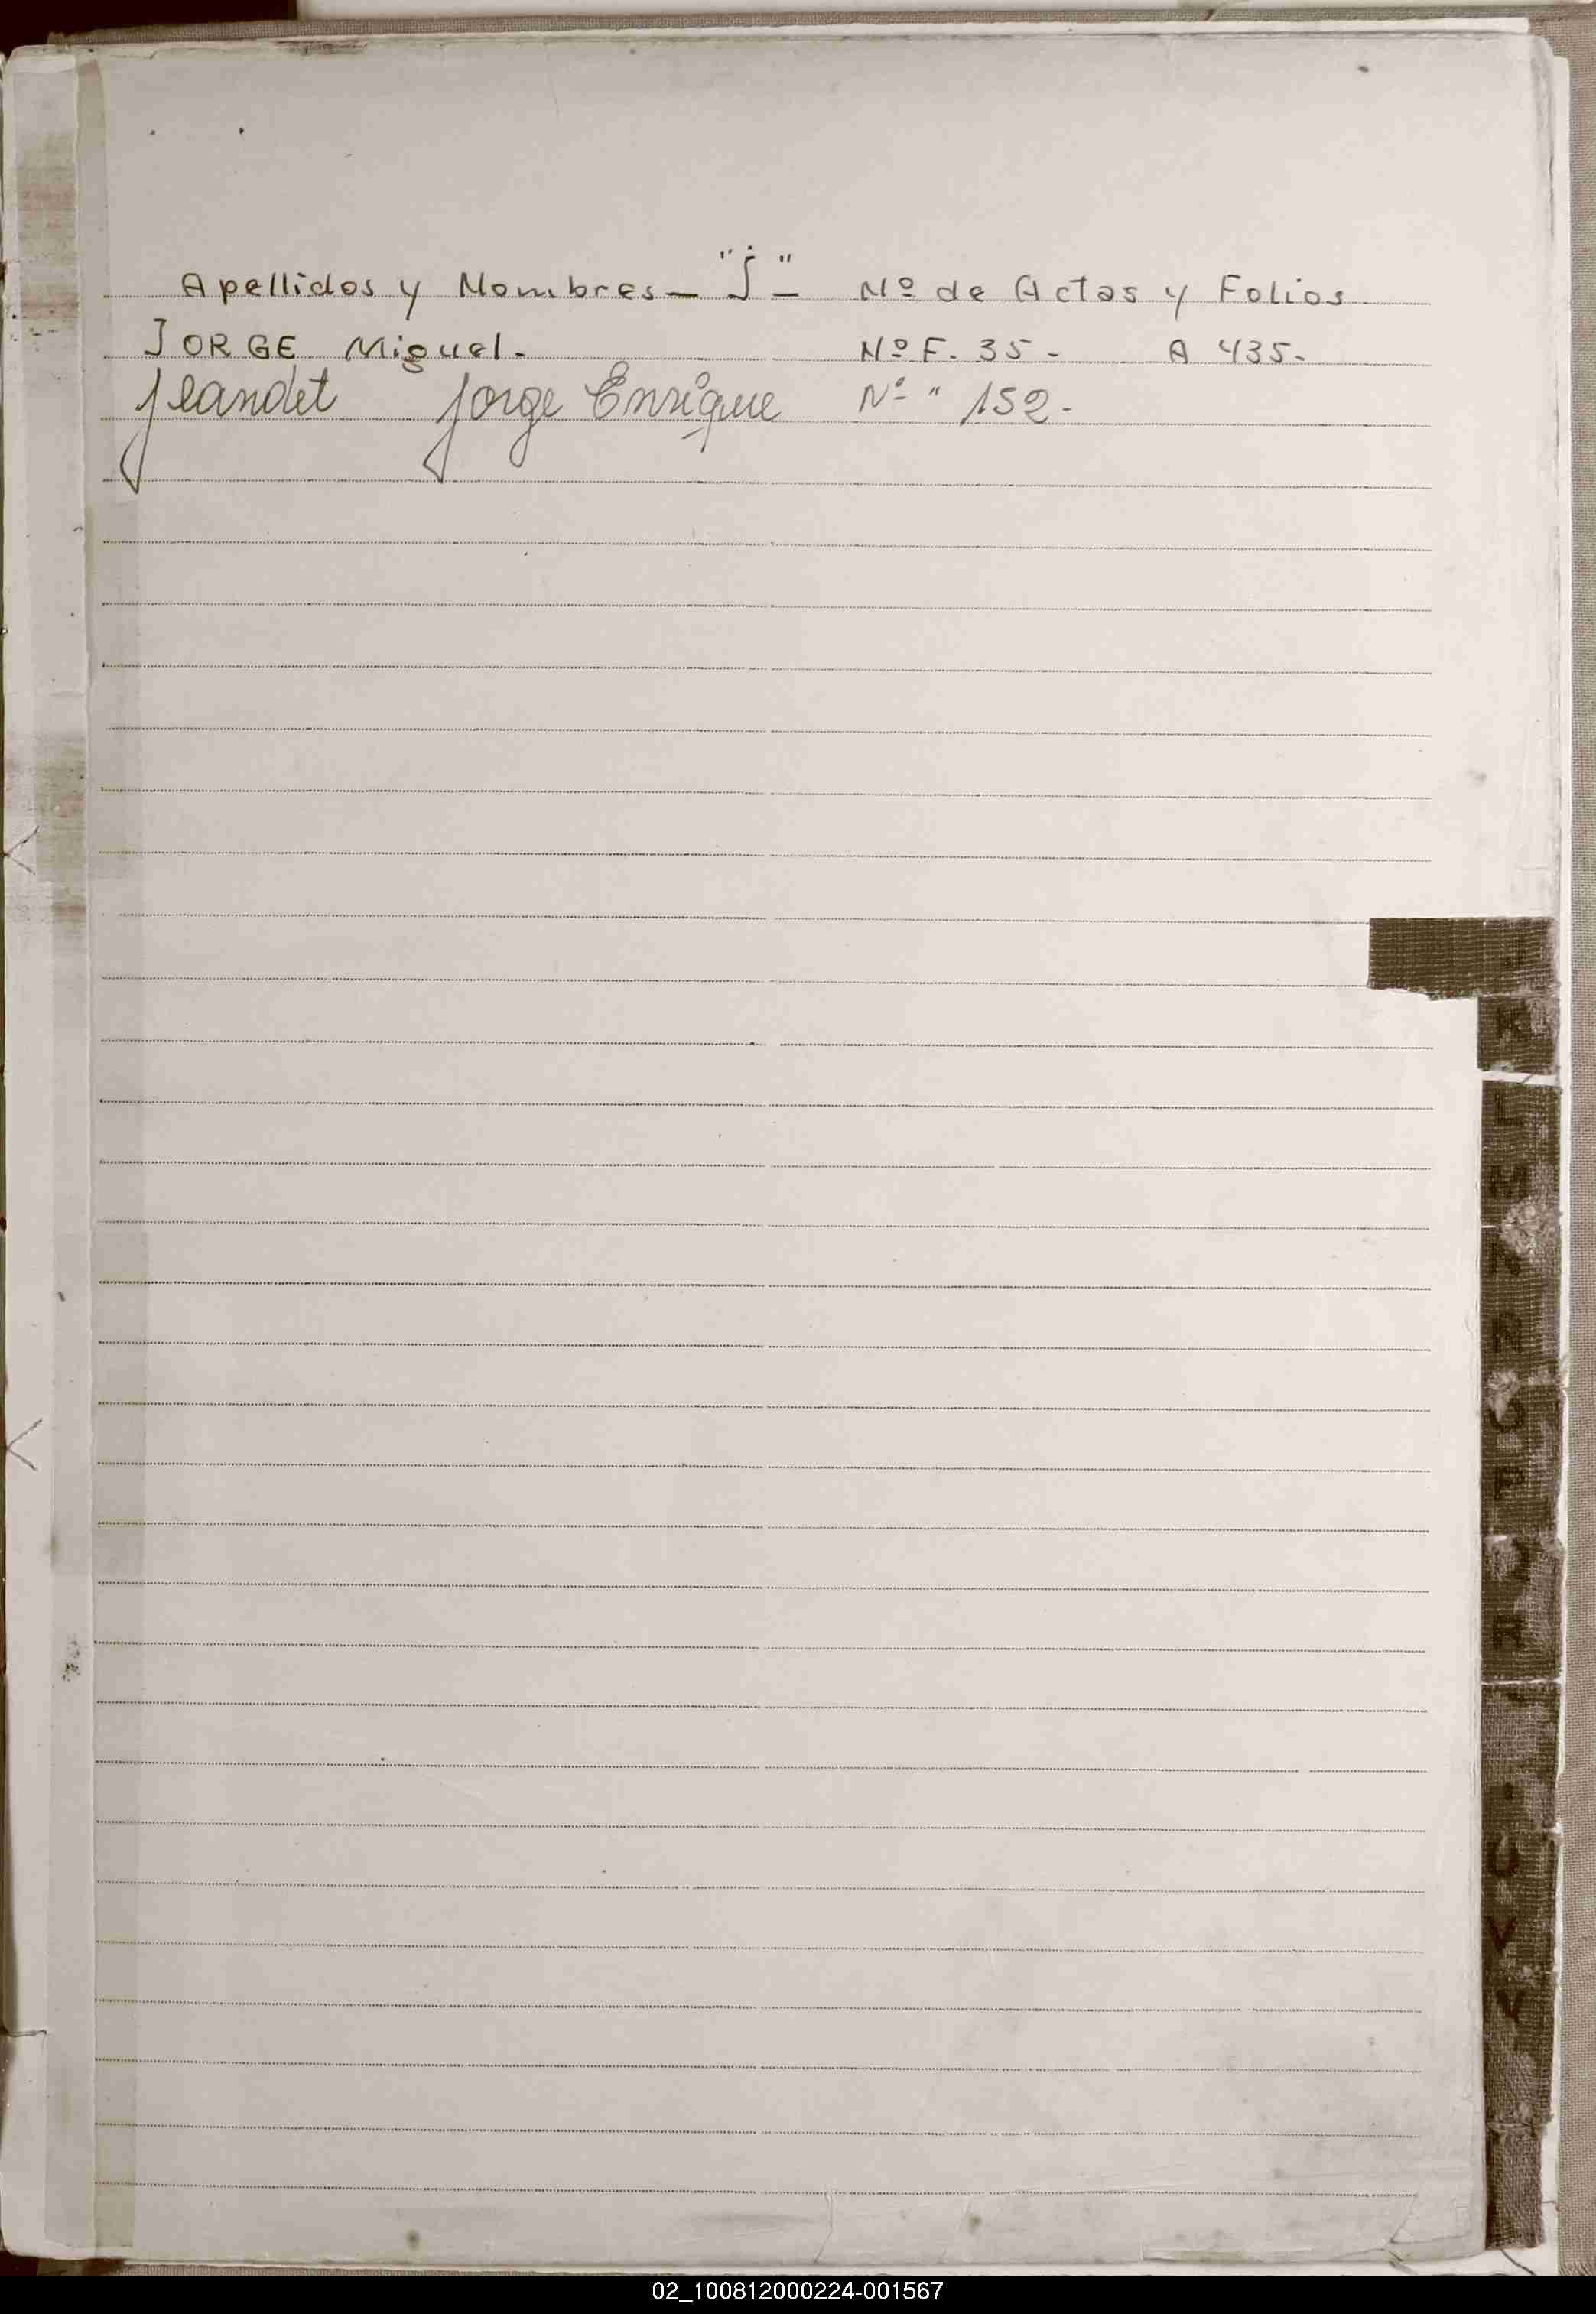 Apellidos y Nombres - "J" - Nº de Actas y Folios
JORGE Miguel. Nº F. 35 - A 435.
Jeandet Jorge Enrique Nº " 152.
J
K
L
M
N
Ñ
O
P
Q
R
U
V
Y
02_100812000224-001567